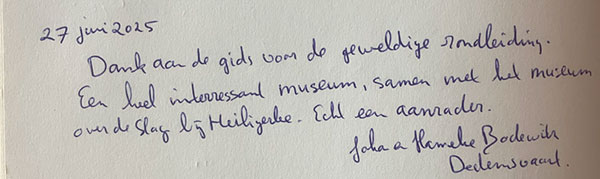 27 juni 2025
Dank aan de gids voor de geweldige rondleiding.
Een heel interressant museum, samen met het museum
over de Slag bij Heiligerlee. Echt een aanrader.
Joha a Hameke Bodewih
Dedemsvaart.